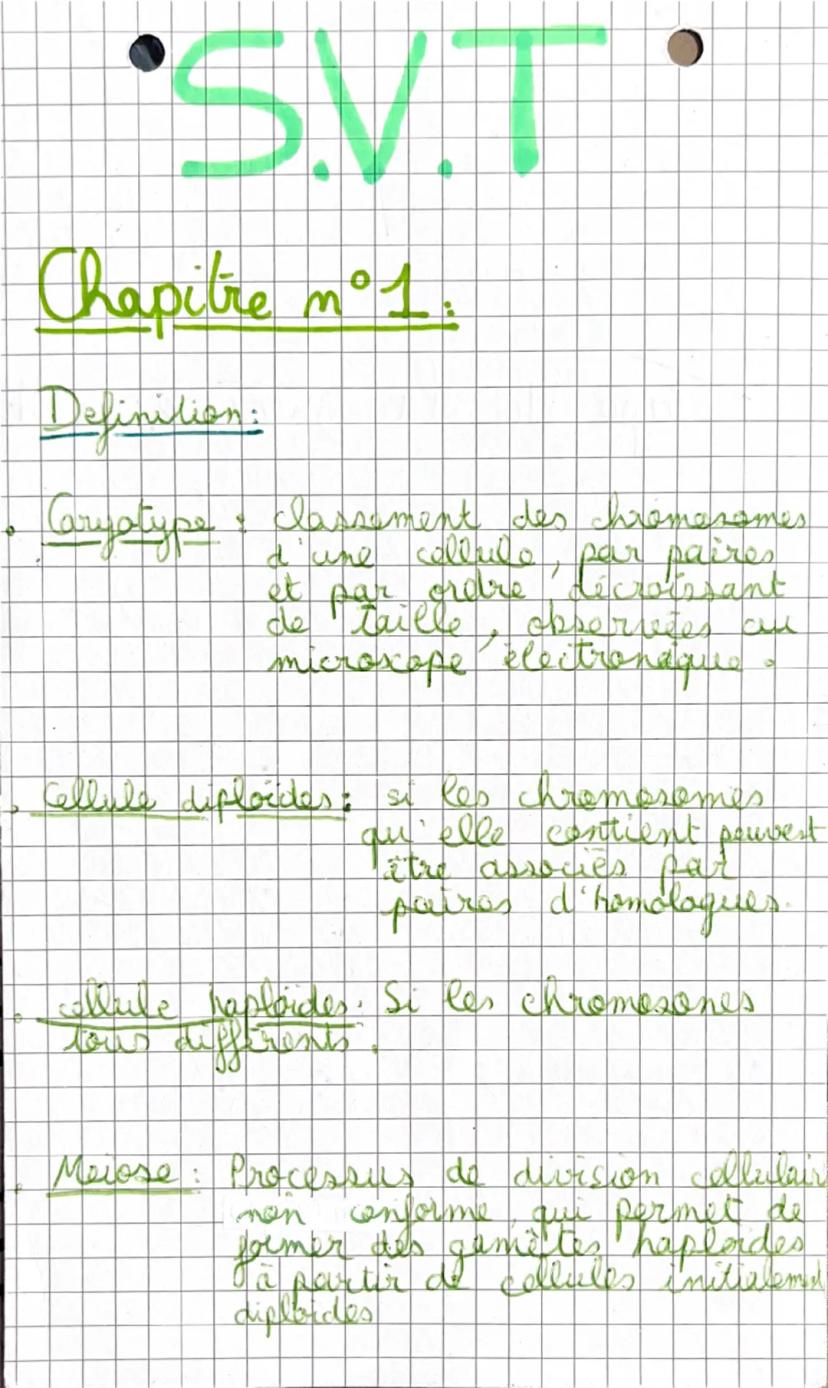 S.V.T
Chapitre n°1:
Definition:
Caryotype : classement des chromosomes
d'une cellule, par paires
et par ordre décroissant
de taille, observées au
microscope électronique.
Cellule diploïdes: si les chromosomes
qu'elle contient peuvent
être associés par
paires d'homologues.
cellule haploïdes: Si les chromosones
tous différents.
Meiose: Processus de division cellulair
non conforme, qui permet de
former des gamètes haploïdes
à partir de cellules initialement
diploïdes